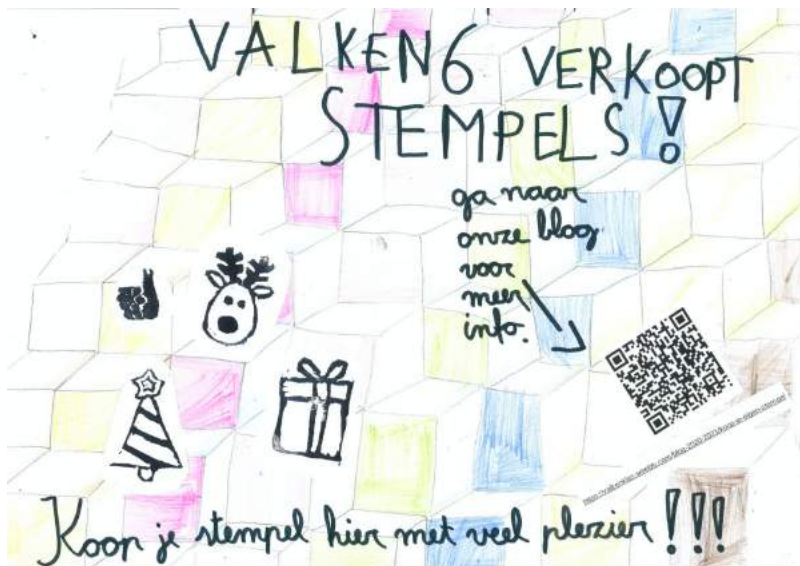 VALKEN6 VERKOOPT
STEMPELS!
ga naar
onze blog
voor
meer
info.
Koop je stempel hier met veel plezier!!!